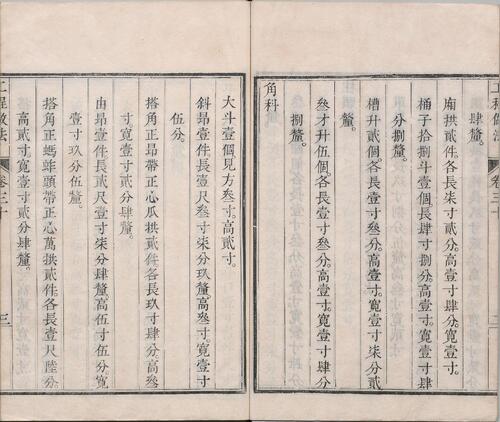 工程做法
卷三十
肆釐。
廂拱貳件。各長柒寸貳分。高壹寸肆分。寬壹寸。
桶子拾捌斗壹個。長肆寸捌分。高壹寸。寬壹寸肆
分捌釐。
槽升貳個。各長壹寸叁分。高壹寸。寬壹寸柒分貳
釐。
叁才升伍個。各長壹寸叁分。高壹寸。寬壹寸肆分
捌釐。
角科
大斗壹個。見方叁寸。高貳寸。
斜昂壹件。長壹尺叁寸柒分玖釐。高叁寸。寬壹寸
伍分。
搭角正昂帶正心瓜拱貳件。各長玖寸肆分。高叁
寸。寬壹寸貳分肆釐。
由昂壹件。長貳尺壹寸柒分肆釐。高伍寸伍分。寬
壹寸玖分伍釐。
搭角正螞蚱頭帶正心萬拱貳件。各長壹尺陸分。
高貳寸。寬壹寸貳分肆釐。
工程做法
卷三十
三